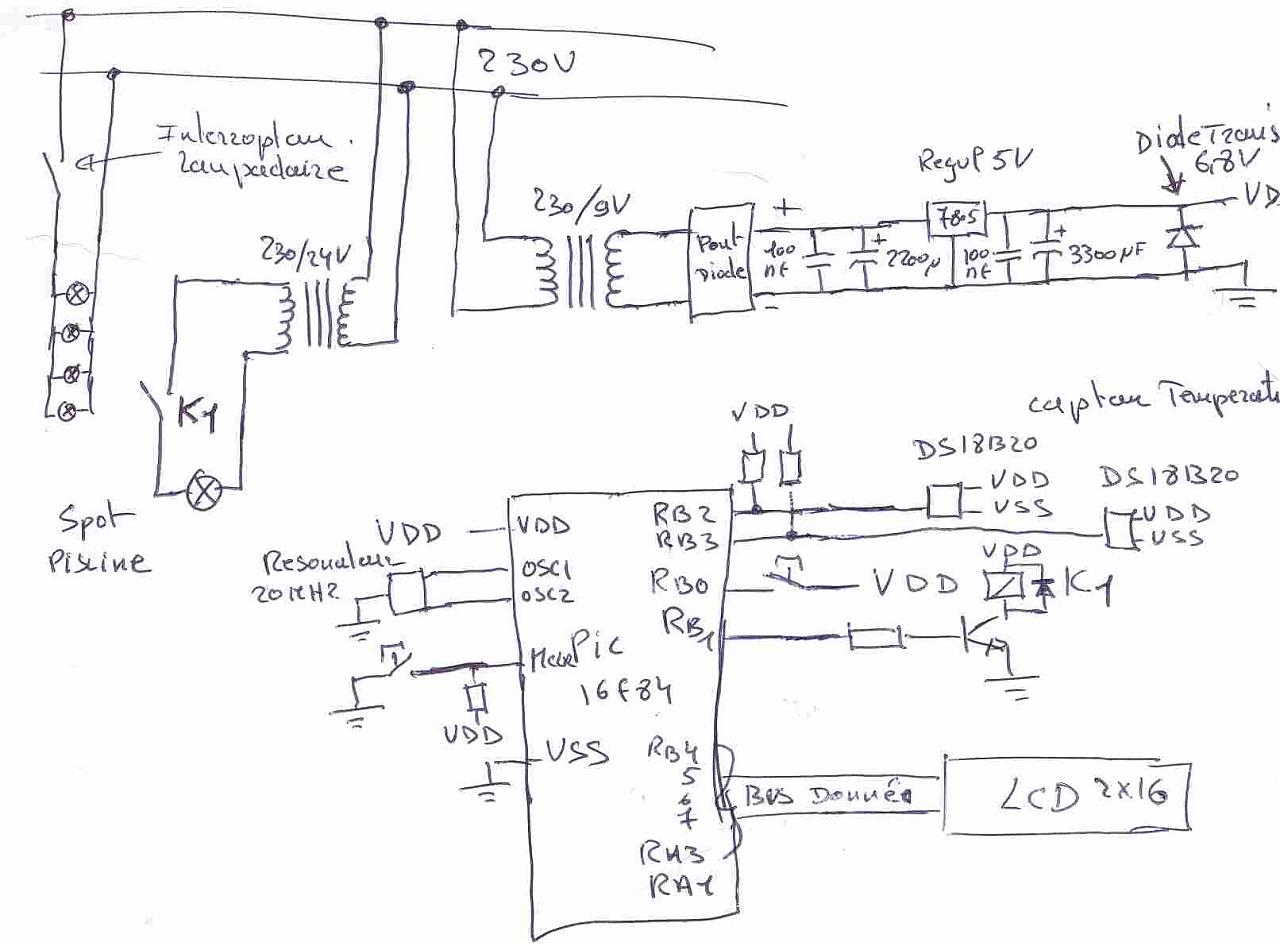 230V
Interroptan.
lampadaire
230/24V
230/9V
Regul 5V
Diode Trans
6,8V
VD
7805
Pont
Diode
+
100
nf
+
2200µ
100
nf
+
3300µF
K1
Spot
Piscine
capteur Temperat
VDD
DS18B20
VDD
VSS
DS18B20
VDD
VSS
VDD
VDD
RB2
RB3
Resonateur
20MHZ
OSC1
OSC2
RB0
VDD
VDD
K1
RB1
Pic
16F84
VDD
VSS
RB4
5
6
7
Bus Donnée
LCD 2x16
RA3
RA1